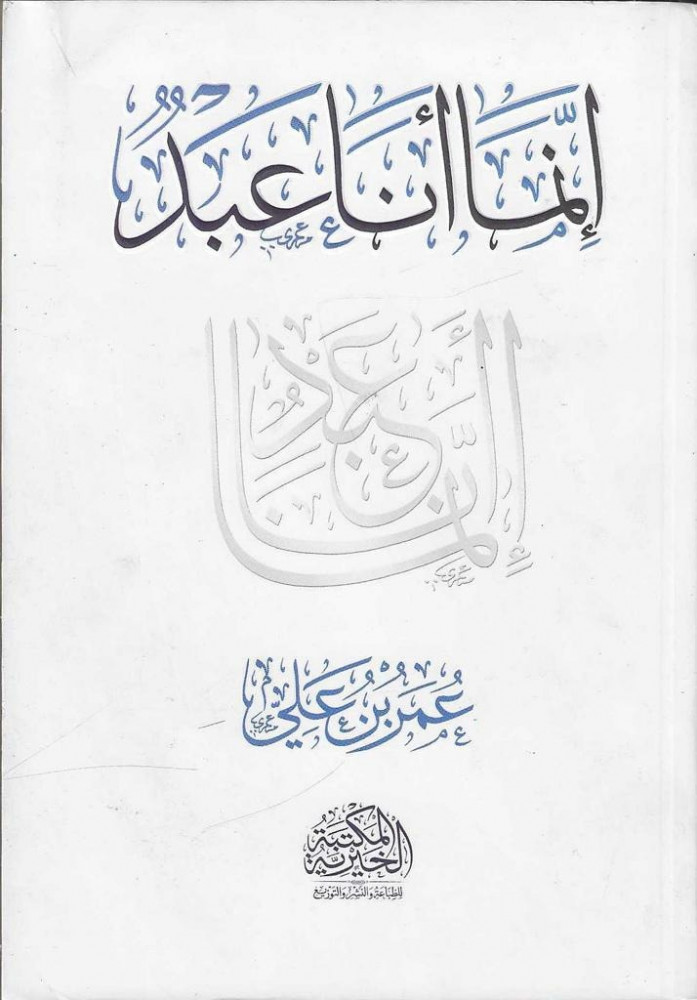 إِنَّمَا أَنَا عَبْدٌ
إنما أنا عبد
عُمَرُ بْنُ عَلِيّ
المكتبة
الخيرية
للطباعة والنشر والتوزيع